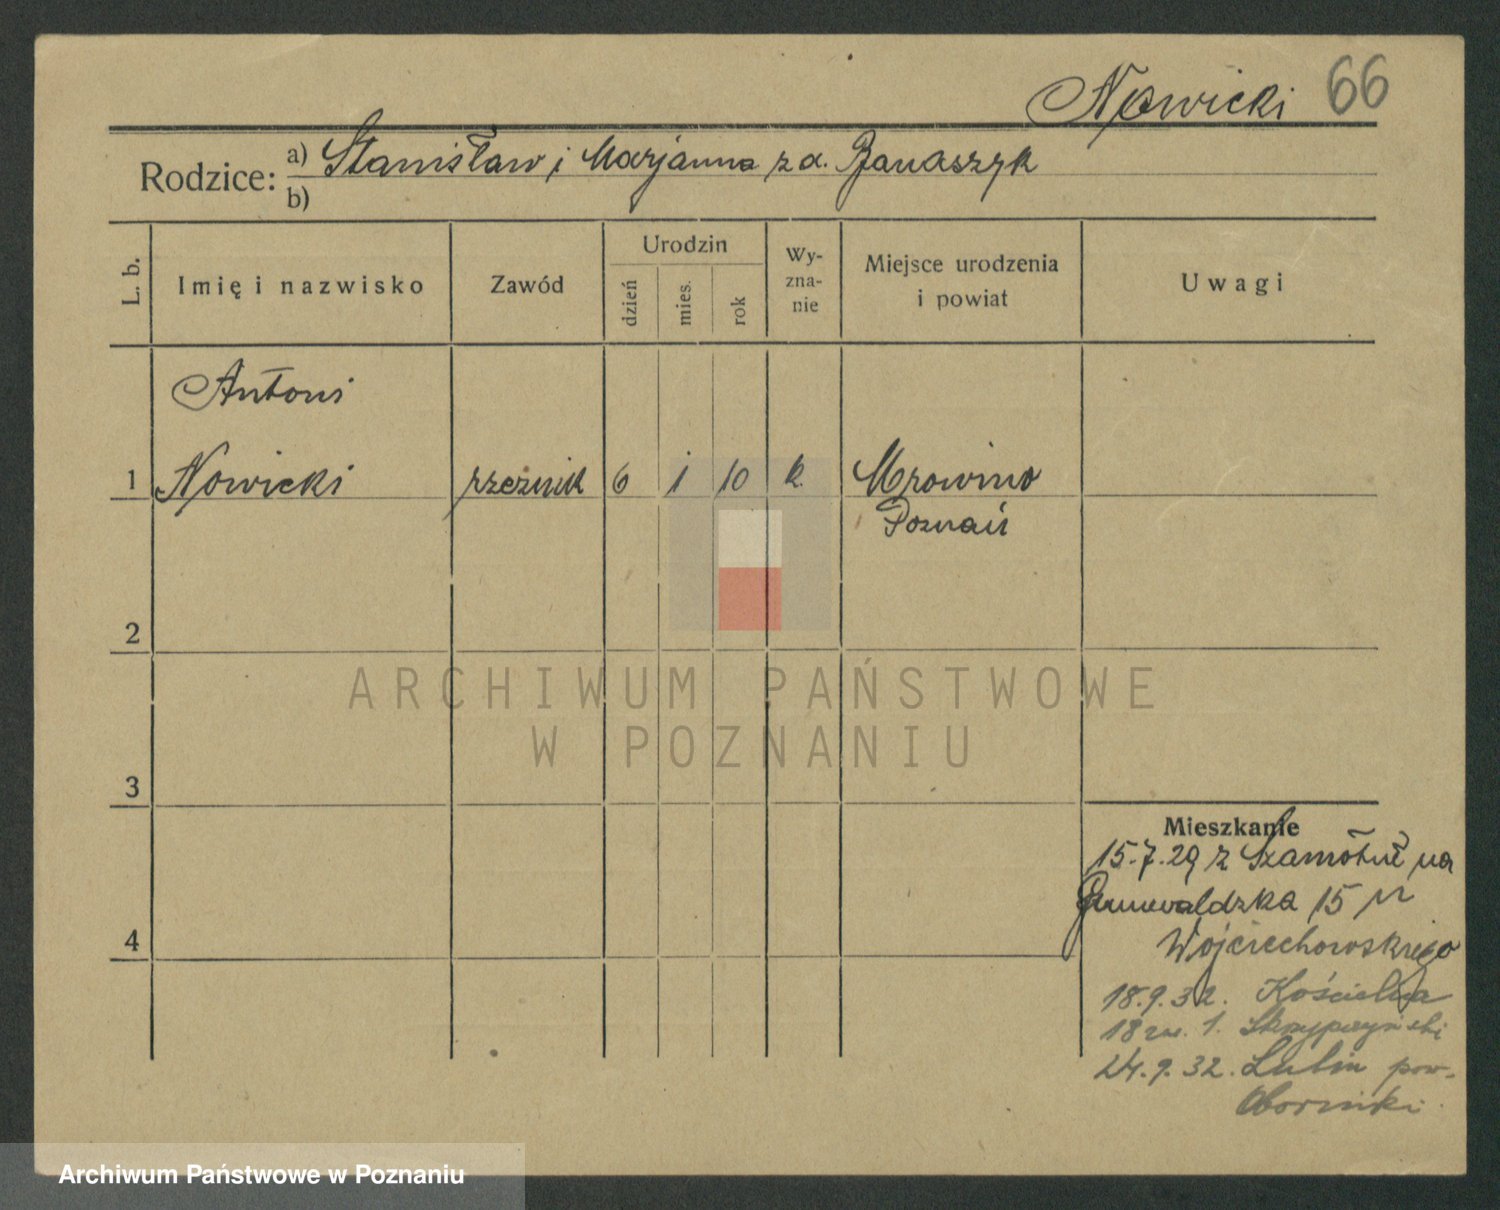 Nowicki 66
Rodzice: a) Stanisław i Marjanna z d. Banaszyk
b)
L. b.
Imię i nazwisko
Zawód
Urodzin
dzień
mies.
rok
Wy-
zna-
nie
Miejsce urodzenia
i powiat
Uwagi
Antoni
1 Nowicki rzeźnik 6 1 10 k. Mrowino
Poznań
2
ARCHIWUM PAŃSTWOWE
W POZNANIU
3
Mieszkanie
15.7.29 z Szamotuł na
Grunwaldzka 15
4
Wojciechowskiego
18.9.32. Kościelna
18 1. Skrzypczyński
24.9.32. Lulin pow.
Oborniki.
Archiwum Państwowe w Poznaniu